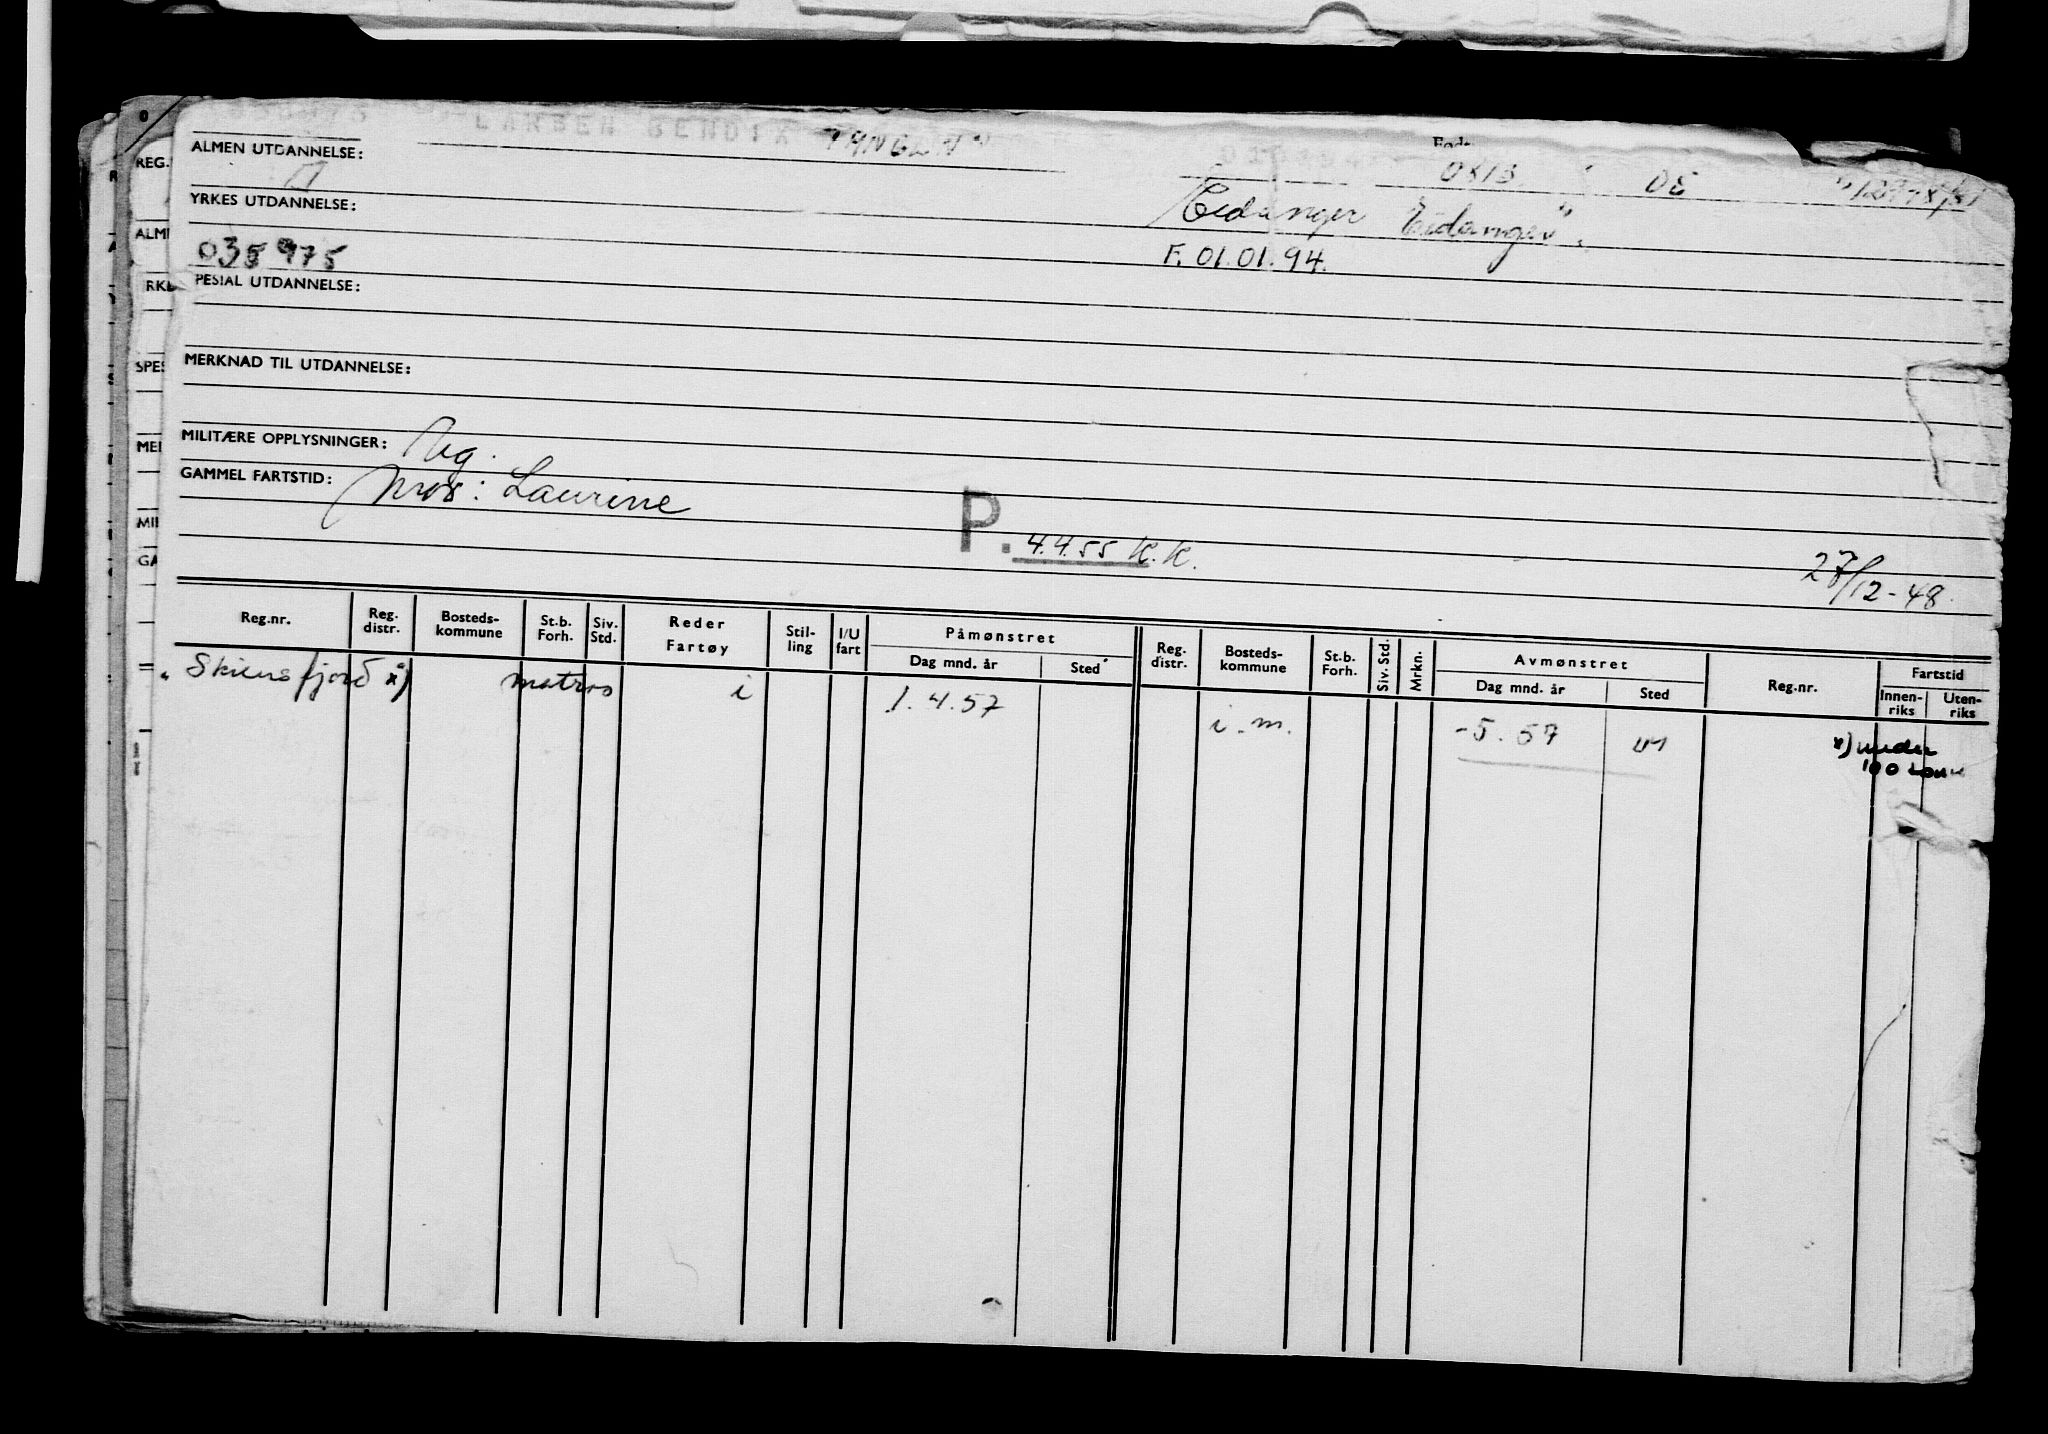 LARSEN BENDIX TANGEN"
ALMEN UTDANNELSE:
0813 OE
YRKES UTDANNELSE:
Eidanger Eidanger".
035975
F. 01.01.94.
PESIAL UTDANNELSE:
MERKNAD TIL UTDANNELSE:
MILITÆRE OPPLYSNINGER:
GAMMEL FARTSTID: Mor: Laurine
P. 4.4.55 K.K.
27/12-48
Reg.nr. Reg. distr. Bosteds-kommune St.b. Forh. Siv. Std. Reder Fartøy Stil-ling I/U fart Påmønstret Dag mnd. år Sted Reg. distr. Bosteds-kommune St.b. Forh. Siv. Std. Mrkn. Avmønstret Dag mnd. år Sted Reg.nr. Fartstid Innen-riks Uten-riks
Skiensfjord x) matros i 1.4.57 i.m. -5.57 x) under
100 tonn
REG.
ALM
RKE
SPES
MEI
MII
GA